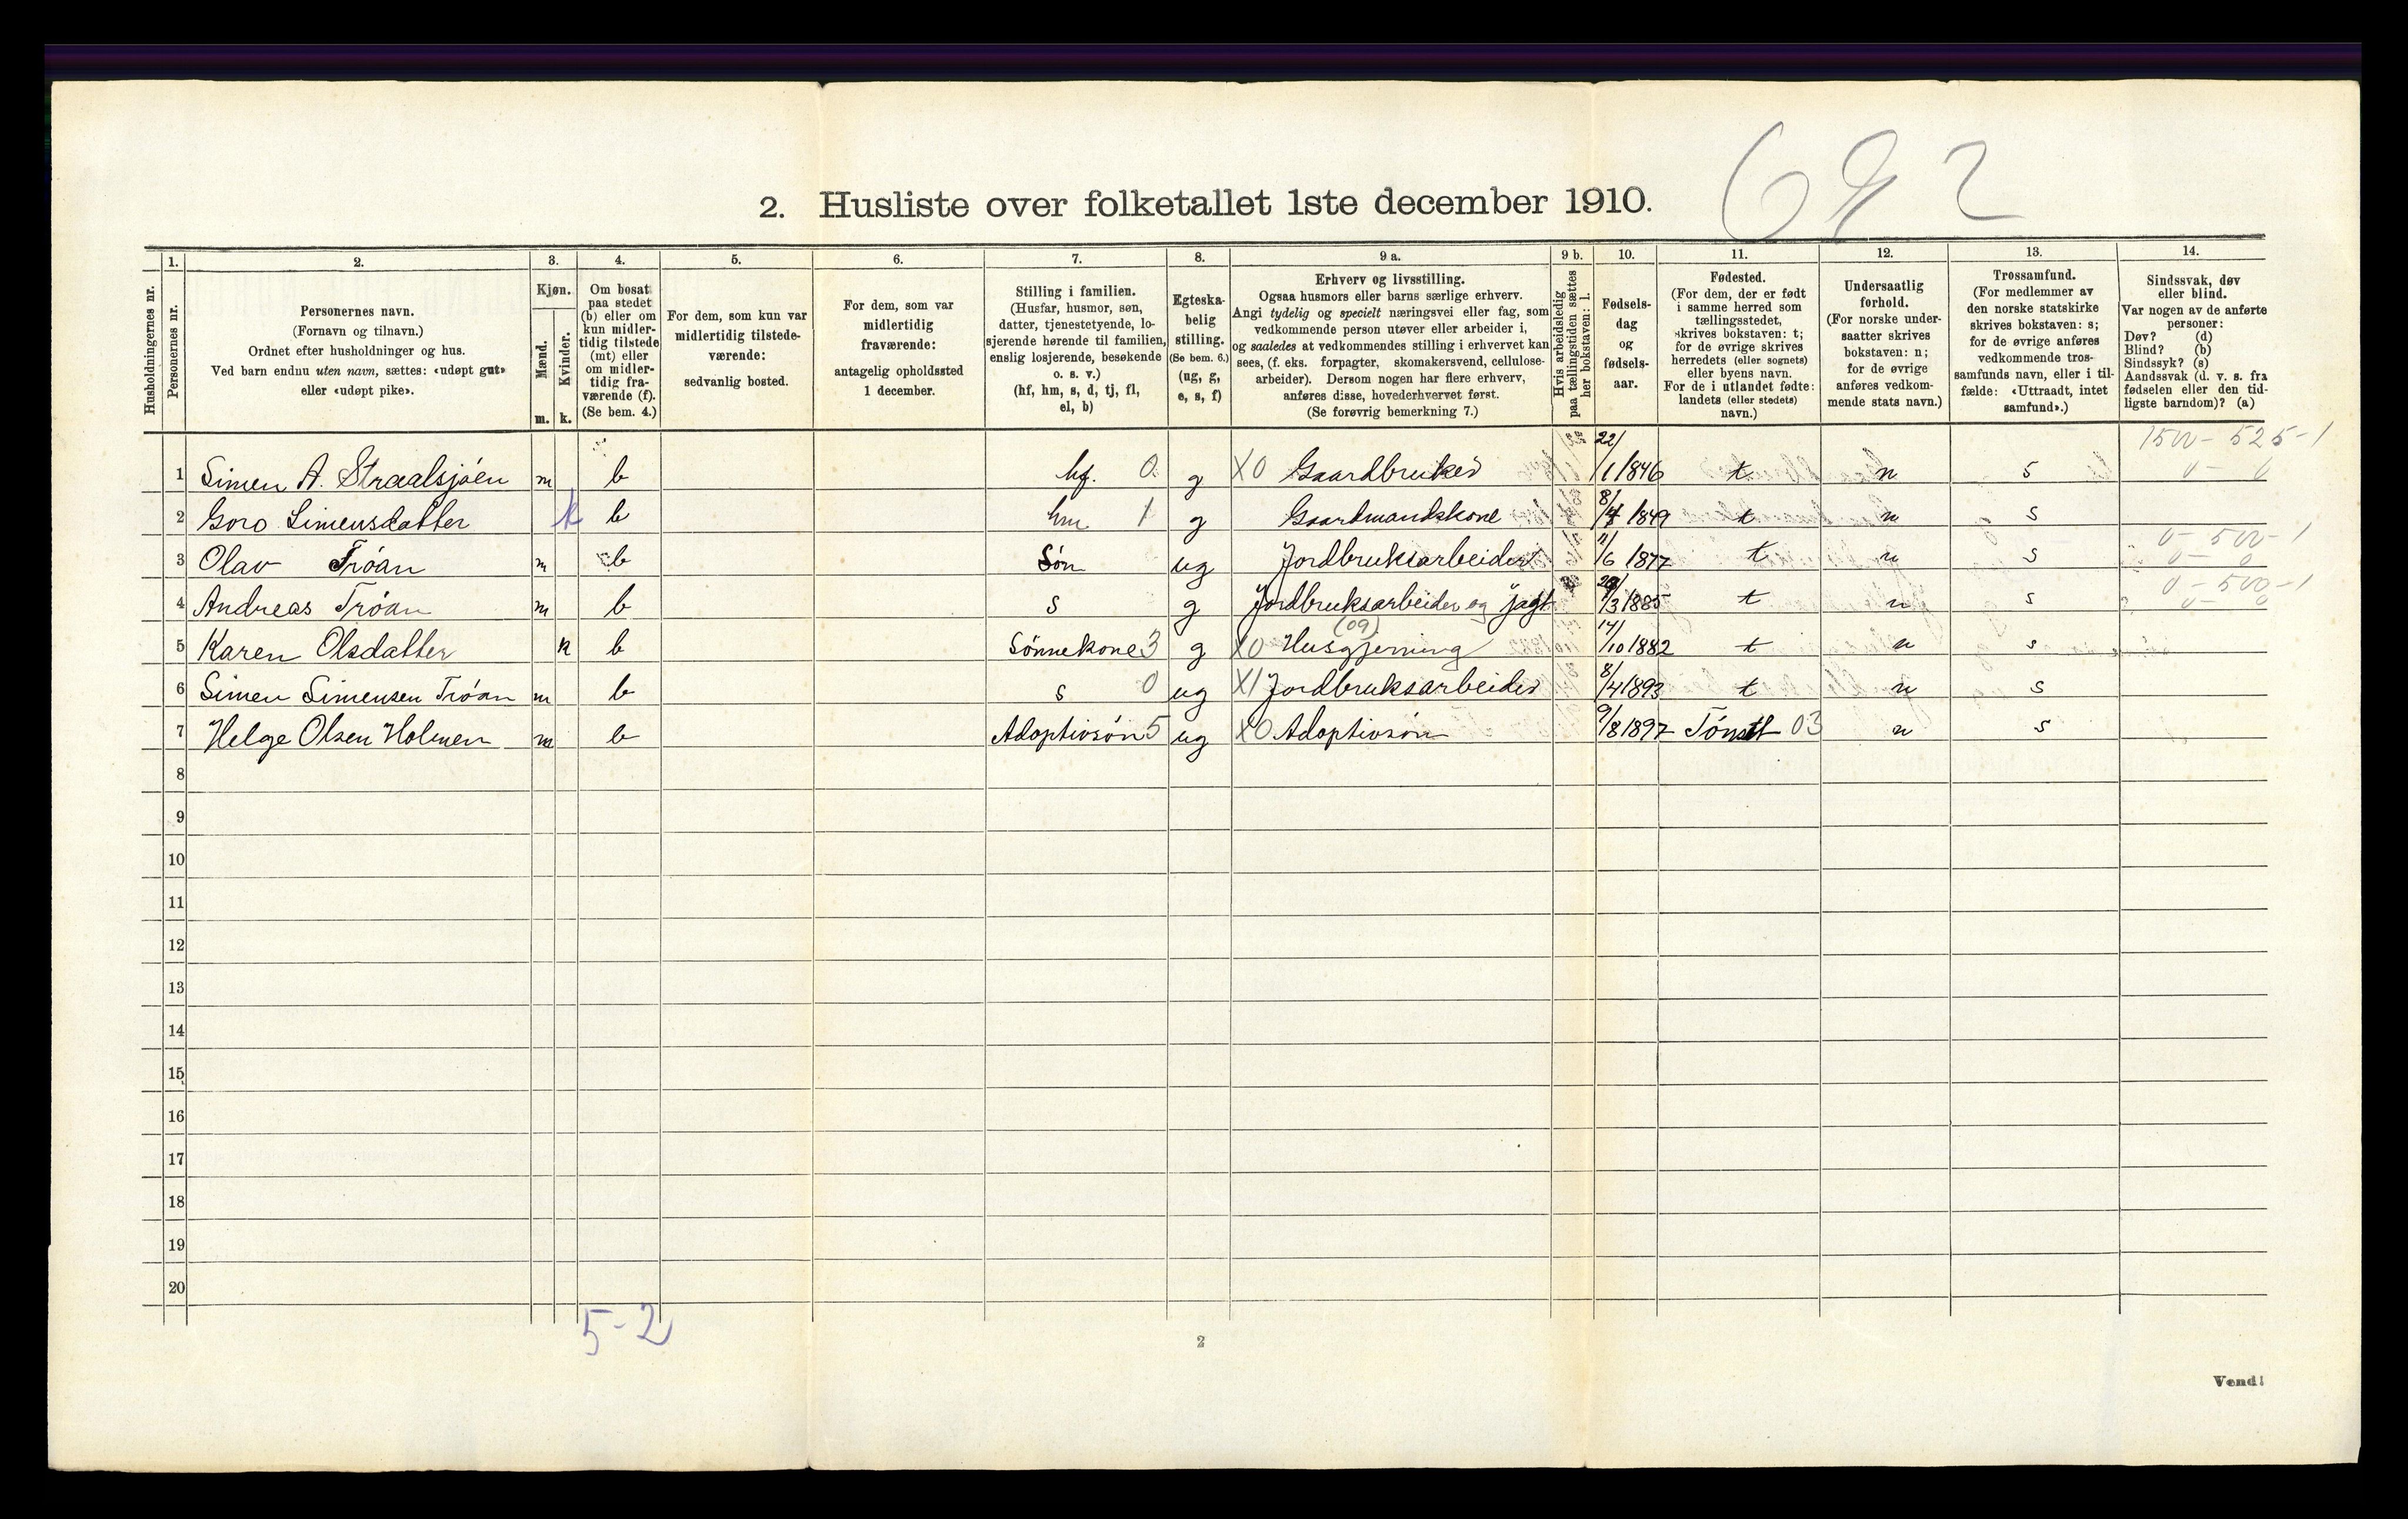 692
2. Husliste over folketallet 1ste december 1910.
1. 2. 3. 4. 5. 6. 7. 8. 9 a. 9 b. 10. 11. 12. 13. 14.
Husholdningernes nr.
Personernes nr.
Personernes navn.
(Fornavn og tilnavn.)
Ordnet efter husholdninger og hus.
Ved barn endnu uten navn, sættes: «udøpt gut»
eller «udøpt pike».
Kjøn.
Mænd.
Kvinder.
m. k.
Om bosat
paa stedet
(b) eller om
kun midler-
tidig tilstede
(mt) eller
om midler-
tidig fra-
værende (f).
(Se bem. 4.)
For dem, som kun var
midlertidig tilstede-
værende:
sedvanlig bosted.
For dem, som var
midlertidig
fraværende:
antagelig opholdssted
1 december.
Stilling i familien.
(Husfar, husmor, søn,
datter, tjenestetyende, lo-
sjerende hørende til familien,
enslig losjerende, besøkende
o. s. v.)
(hf, hm, s, d, tj, fl,
el, b)
Egteska-
belig
stilling.
(Se bem. 6.)
(ug, g,
e, s, f)
Erhverv og livsstilling.
Ogsaa husmors eller barns særlige erhverv.
Angi tydelig og specielt næringsvei eller fag, som
vedkommende person utøver eller arbeider i,
og saaledes at vedkommendes stilling i erhvervet kan
sees, (f. eks. forpagter, skomakersvend, cellulose-
arbeider). Dersom nogen har flere erhverv,
anføres disse, hovederhvervet først.
(Se forøvrig bemerkning 7.)
Hvis arbeidsledig
paa tællingstiden sættes
her bokstaven: l.
Fødsels-
dag
og
fødsels-
aar.
Fødested.
(For dem, der er født
i samme herred som
tællingsstedet,
skrives bokstaven: t;
for de øvrige skrives
herredets (eller sognets)
eller byens navn.
For de i utlandet fødte:
landets (eller stedets)
navn.)
Undersaatlig
forhold.
(For norske under-
saatter skrives
bokstaven: n;
for de øvrige
anføres vedkom-
mende stats navn.)
Trossamfund.
(For medlemmer av
den norske statskirke
skrives bokstaven: s;
for de øvrige anføres
vedkommende tros-
samfunds navn, eller i til-
fælde: «Uttraadt, intet
samfund».)
Sindssvak, døv
eller blind.
Var nogen av de anførte
personer:
Døv? (d)
Blind? (b)
Sindssyk? (s)
Aandssvak (d. v. s. fra
fødselen eller den tid-
ligste barndom)? (a)
1500 - 525 - 1
1 Simen A. Straalsjøen m b hf. 0 g X0 Gaardbruker 22/1 1846 t n s 0 - 0
2 Goro Simensdatter k b hm 1 g Gaardmandskone 8/4 1849 t n s
0 - 500 - 1
3 Olav Trøan m b Søn ug Jordbruksarbeider 11/6 1877 t n s 0 - 0
0 - 500 - 1
4 Andreas Trøan m b s g Jordbruksarbeider og jagt 29/3 1885 t n s 0 - 0
(09)
5 Karen Olsdatter k b Sønnekone 3 g X0 Husgjerning 14/10 1882 t n s
6 Simen Simensen Trøan m b s 0 ug X1 Jordbruksarbeider 8/4 1893 t n s
7 Helge Olsen Holmen m b Adoptivsøn 5 ug X0 Adoptivsøn 9/8 1897 Tønset 03 n s
8
9
10
11
12
13
14
15
16
17
18
19
20
5-2
2
Vend!